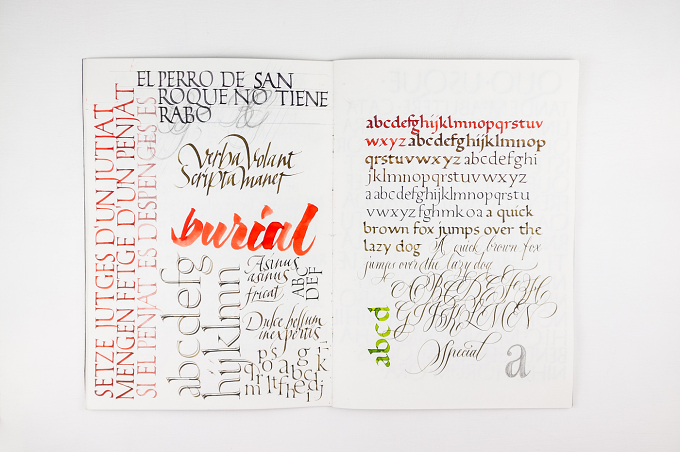 SETZE JUTGES D'UN JUTJAT
MENGEN FETGE D'UN PENJAT
SI EL PENJAT ES DESPENGES ES
EL PERRO DE SAN
ROQUE NO TIENE
RABO
Verba Volant
Scripta Manet
burial
abcdefg
hijklmn
Asinus
asinus
fricat
ABC
DEF
Dulce bellum
inexpertis
abcdefghijklmnopqrstuv
wxyz abcdefghijklmnop
qrstuvwxyz abcdefghi
jklmnopqrstuvwxyz
a abcdefghijklmnopqrstu
vwxyz fghmkoa a quick
brown fox jumps over the
lazy dog A quick brown fox
jumps over the lazy dog
abcd
Special
a